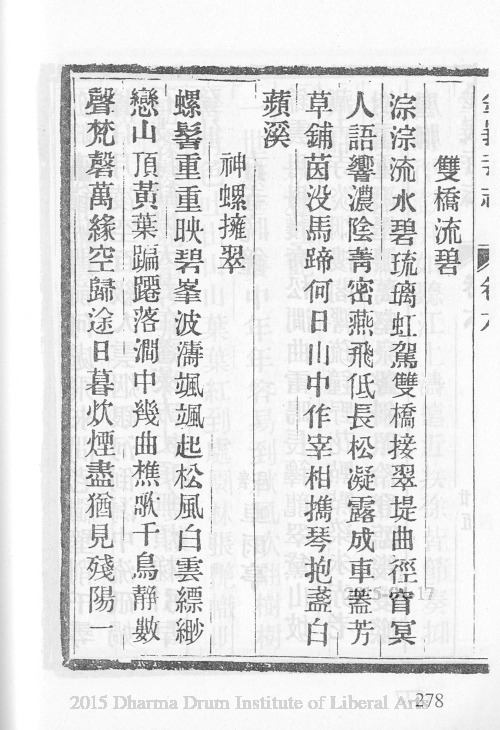 雙橋流碧
淙淙流水碧琉璃虹駕雙橋接翠堤曲徑窅冥
人語響濃陰菁密燕飛低長松凝露成車蓋芳
草鋪茵没馬蹄何日山中作宰相擕琴抱盞白
蘋溪
神螺擁翠
螺髻重重映碧峯波濤颯颯起松風白雲縹緲
戀山頂黃葉蹁躚落澗中幾曲樵歌千鳥靜數
聲梵磬萬緣空歸途日暮炊煙盡猶見殘陽一
278
2015 Dharma Drum Institute of Liberal Arts